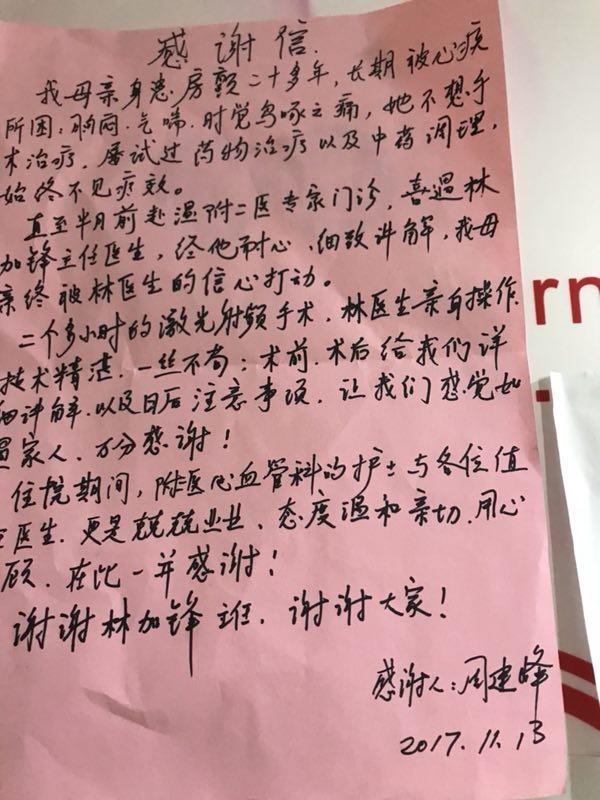 感谢信.
我母亲身患房颤二十多年,长期被心疾
所困:胸闷.气喘.时觉鸟啄之痛,她不想手
术治疗.屡试过药物治疗以及中药调理,
始终不见疗效。
直至半月前赴温附二医专家门诊,喜遇林
加锋主任医生,经他耐心、细致讲解,我母
亲终被林医生的信心打动。
二个多小时的激光射频手术.林医生亲自操作
技术精湛.一丝不苟;术前.术后给我们详
细讲解.以及日后注意事项.让我们感觉如
遇家人.万分感谢!
住院期间,附医心血管科的护士与各位值
医生.更是兢兢业业、态度温和亲切.用心
顾.在此一并感谢!
谢谢林加锋主任.谢谢大家!
感谢人:周建峰
2017.11.13
rn